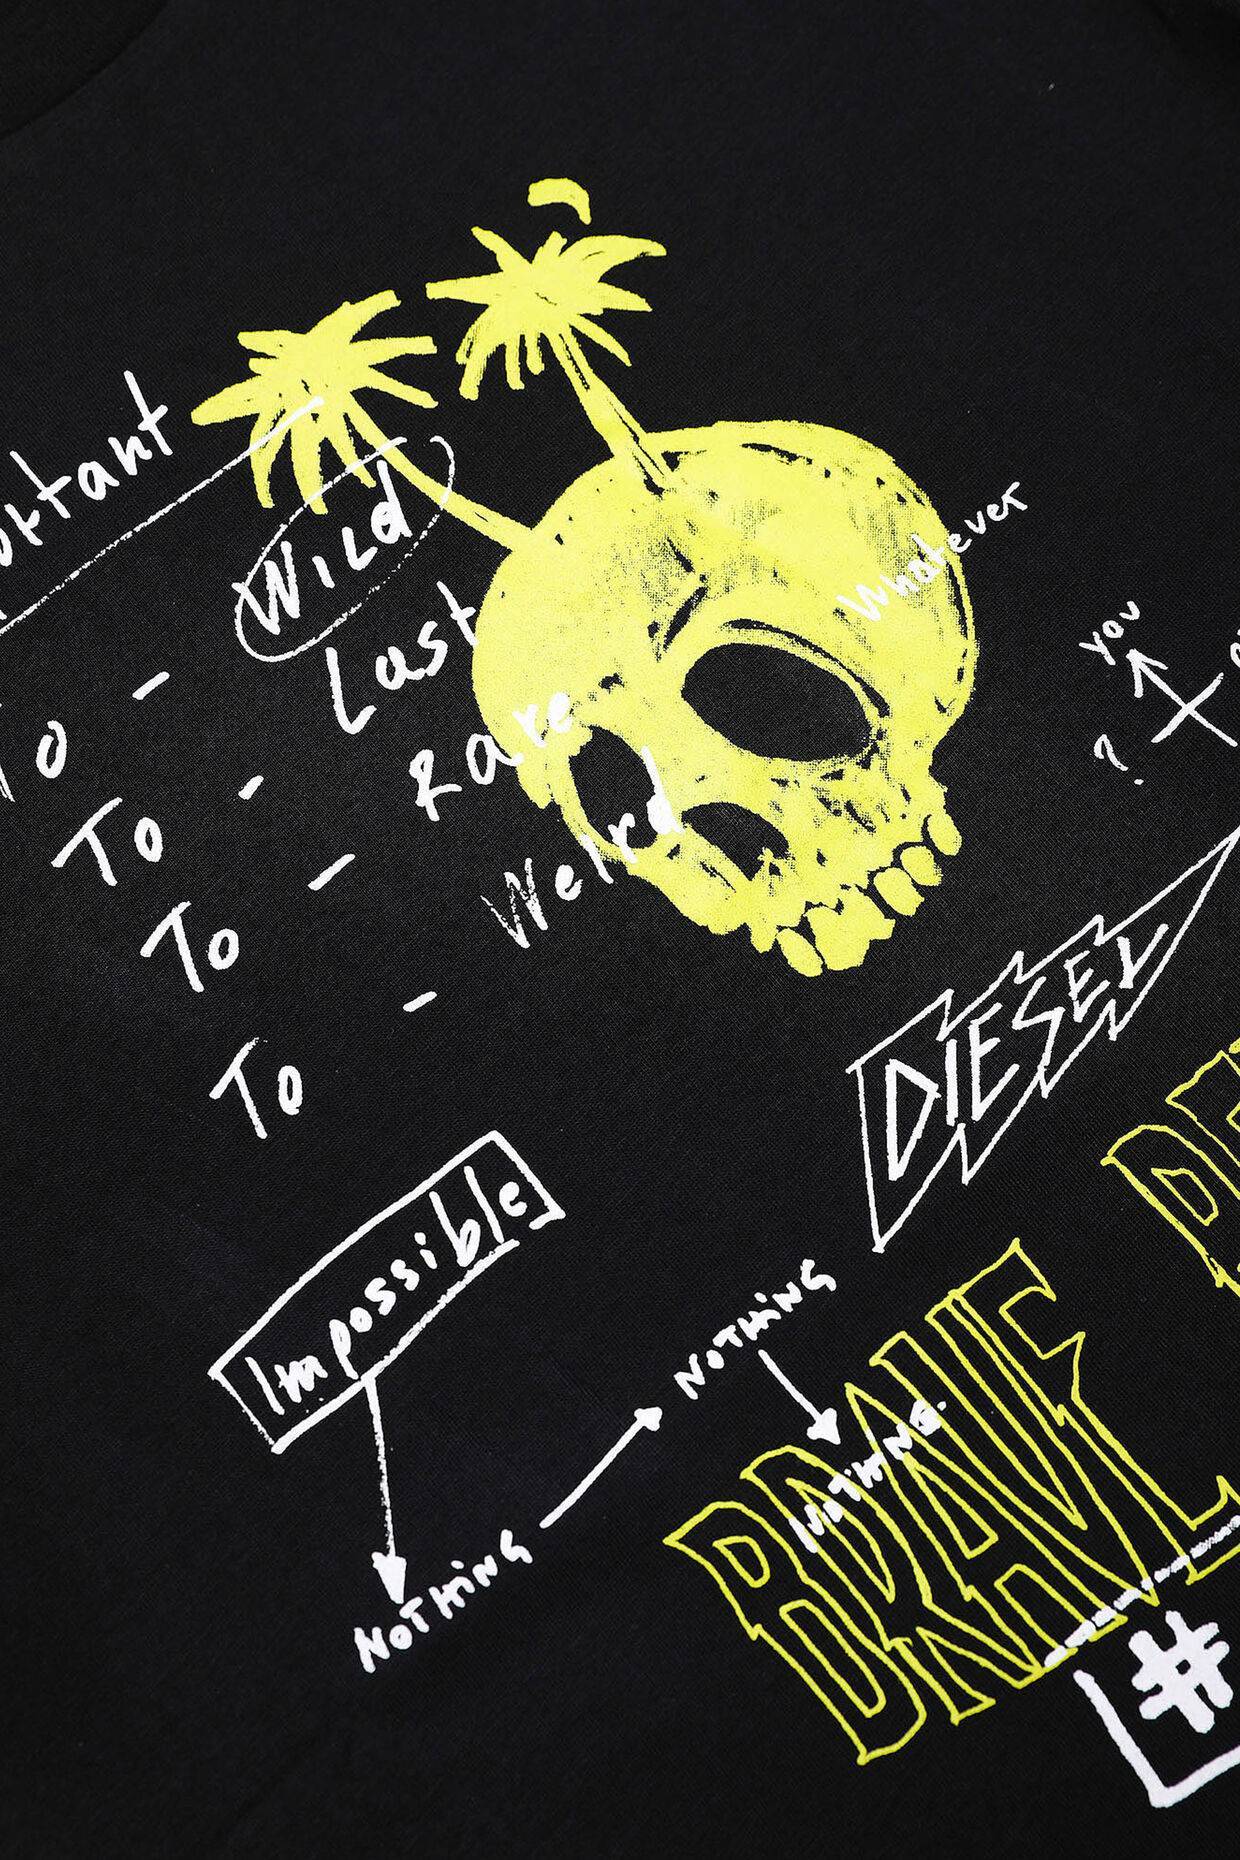 Wild
To - Last
To - Rare
To - Weird
To -
Whatever
YOU
?
DIESEL
Impossible
NOTHING
NOTHING
NOTHING.
BRAVE
#